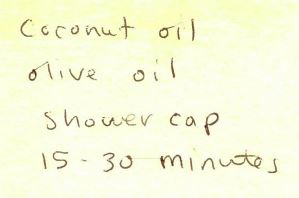 Coconut oil
olive oil
shower cap
15-30 minutes